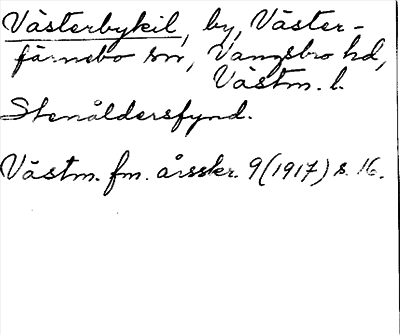 Västerbykil, by, Väster-
färnebo sn, Vangsbro hd,
Västm. l.
Stenåldersfynd.
Västm. fm. årsskr. 9 (1917) s. 16.